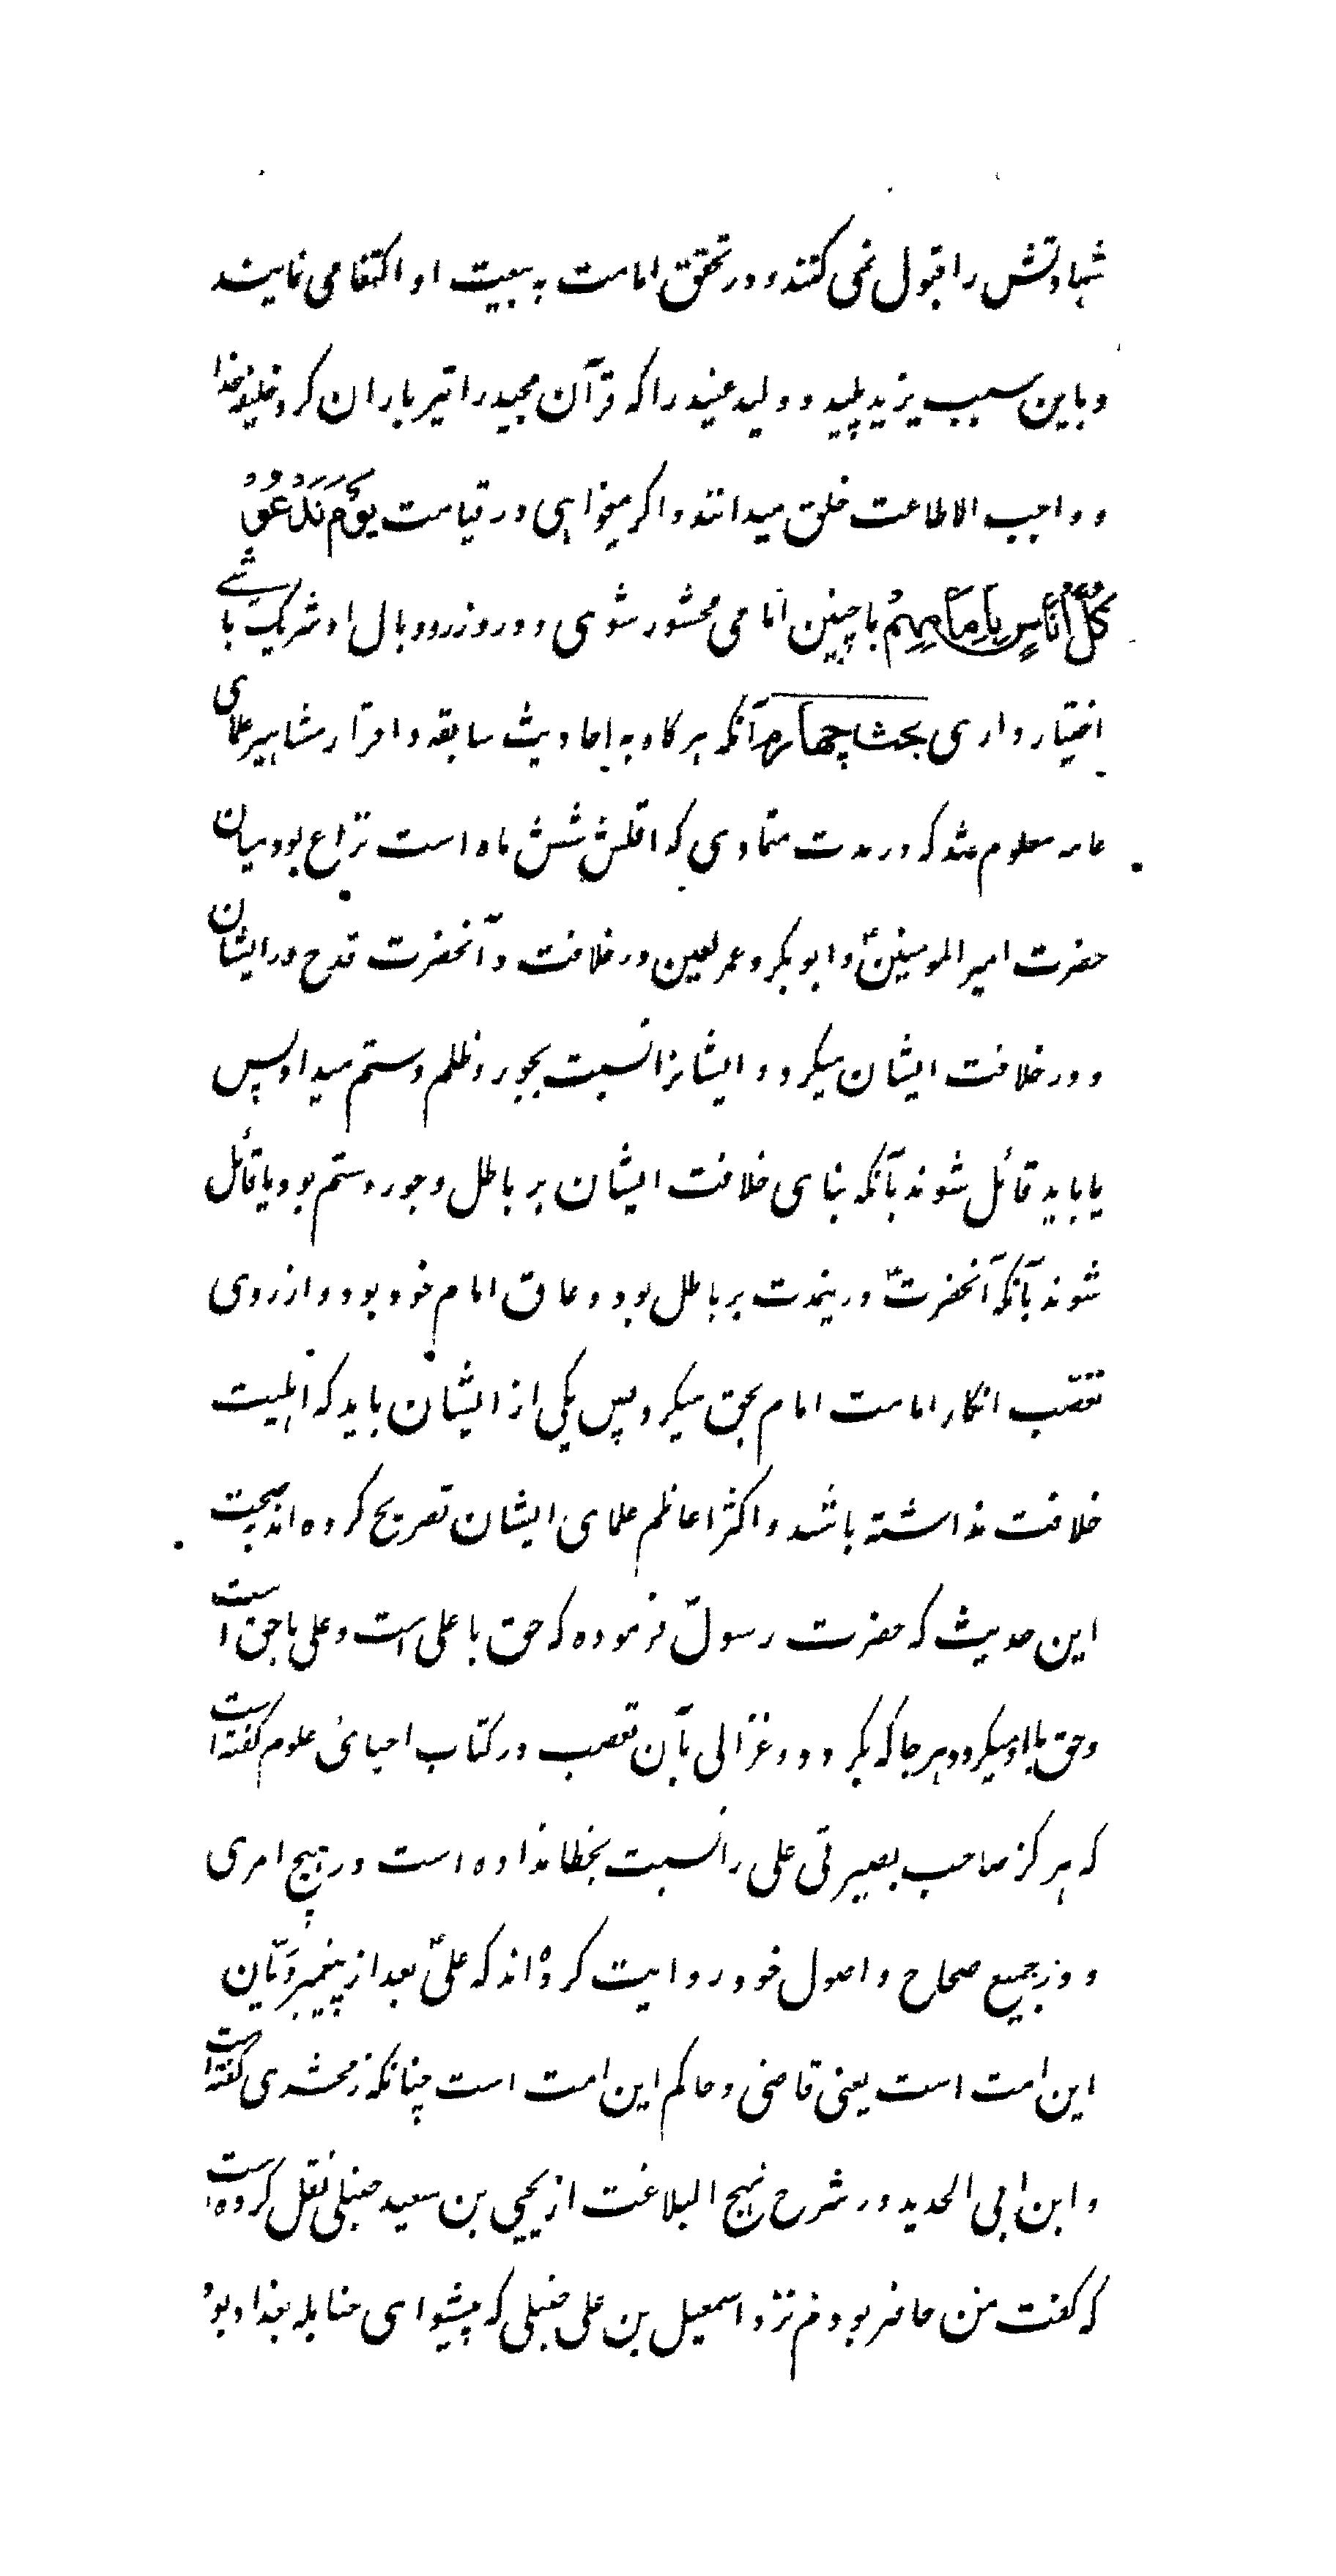 شهادتش را قبول نمی کنند و در تحقق امامت به بیعت او اکتفا می نمایند
و باین سبب یزید پلید و ولید عنید را که قرآن مجید را تیر باران کرد خلیفه خدا
و واجب الاطاعت خلق میدانند و اگر میخواهی در قیامت یَوْمَ نَدْعُو
كُلَّ أُنَاسٍ بِإِمَامِهِمْ با چنین امامی محشور شوی و در وزر و وبال او شریک باشے
اختیار داری بحث چهارم آنکه هرگاه به احادیث سابقه و اقرار مشاهیر علمای
عامه معلوم شد که در مدت متمادی که اقلش شش ماه است نزاع بود میان
حضرت امیر المومنینؑ و ابو بکر و عمر لعین در خلافت و آنحضرت قدح در ایشان
و در خلافت ایشان میکرد و ایشانرا نسبت بجور و ظلم و ستم میداد پس
یا باید قائل شوند بآنکه بنای خلافت ایشان بر باطل و جور و ستم بود و یا قائل
شوند بآنکه آنحضرتؑ درینمدت بر باطل بود و عاق امام خود بود و از روی
تعصّب انکار امامت امام بحق میکرد پس یکی از ایشان باید که اهلیت
خلافت نداشته باشد و اکثر اعاظم علمای ایشان تصریح کرده اند بصحت
این حدیث که حضرت رسولؐ فرموده که حق با علی است و علی با حق است
و حق با او میگردد هر جا که بگردد و غزالی بآن تعصب در کتاب احیائ علوم گفته است
که هرگز صاحب بصیرتی علی را نسبت بخطا نداده است در هیچ امری
و در جمیع صحاح و اصول خود روایت کرده اند که علیؑ بعد از پیغمبر دیّان
این امت است یعنی قاضی و حاکم این امت است چنانکه زمخشری گفته است
و ابن ابی الحدید در شرح نهج البلاغت از یحیی بن سعید حنبلی نقل کرده است
که گفت من حاضر بودم نزد اسمعیل بن علی حنبلی که پیشوای حنابله بغداد بود